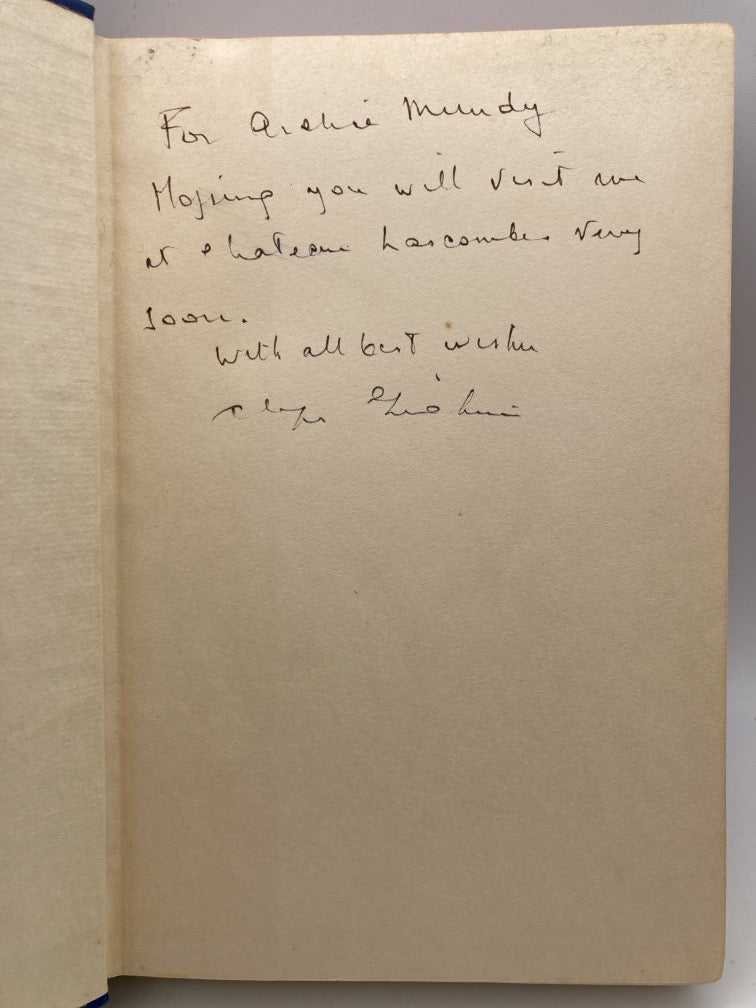 For Archie Mundy
Hoping you will visit me
at Chateau Lascombes very
soon.
With all best wishes
Alexis Lichine